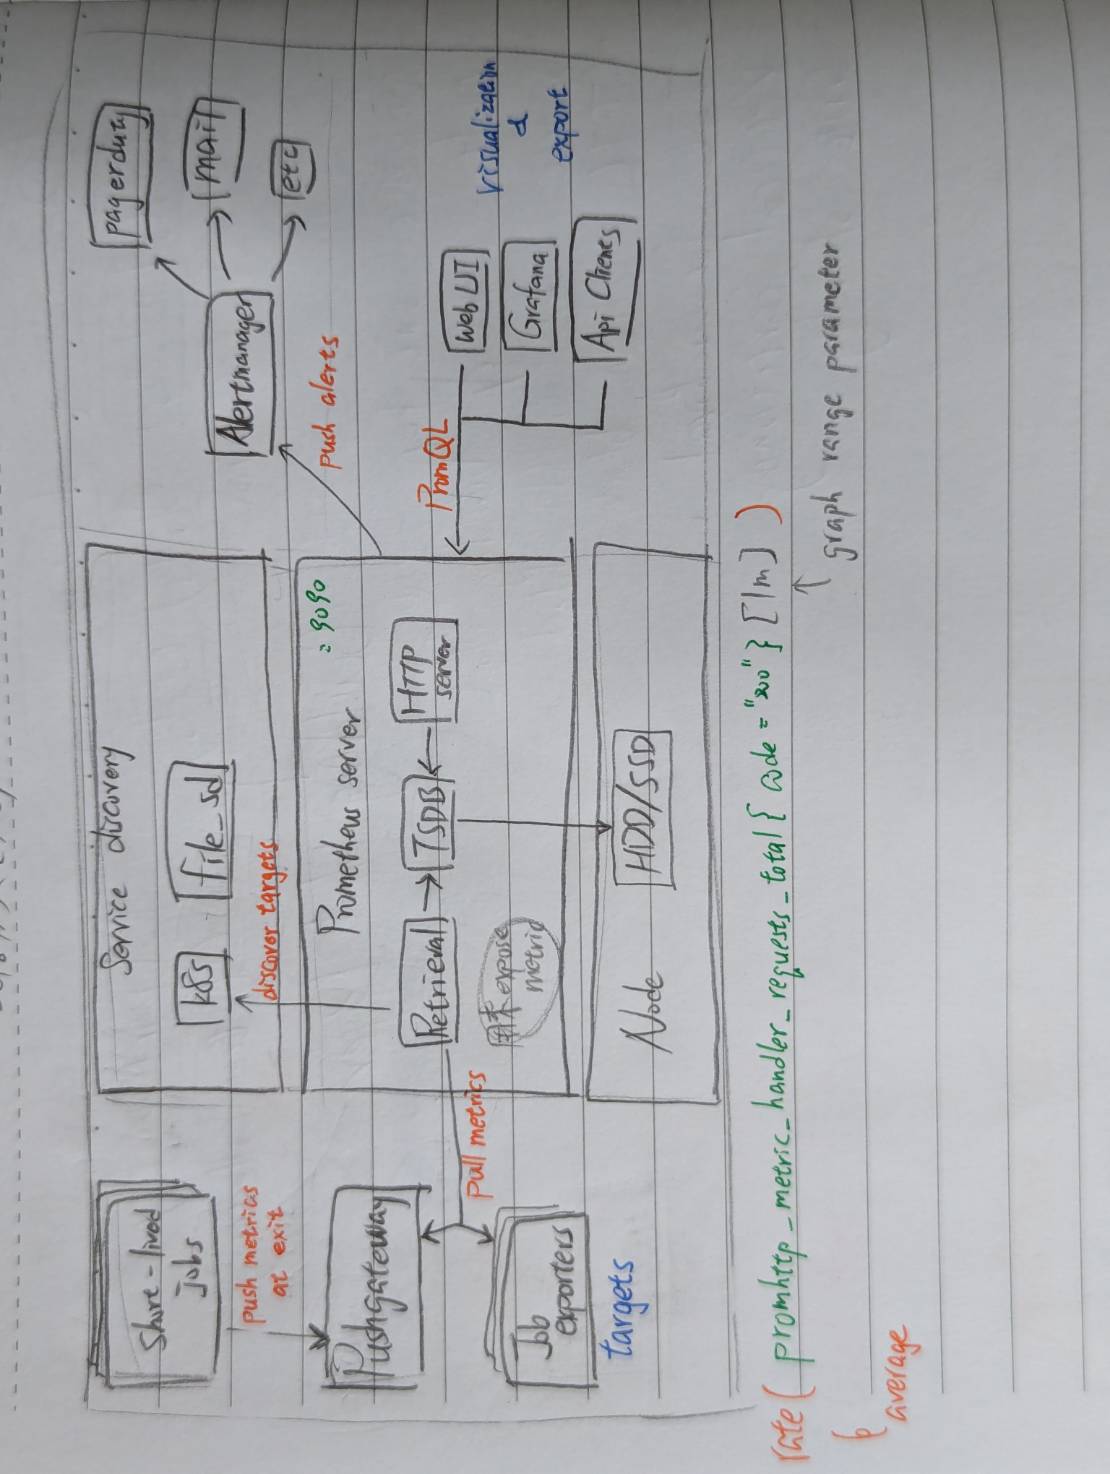 Short-lived
jobs
push metrics
at exit
Pushgateway
pull metrics
Job
exporters
targets
Service discovery
k8s
file_sd
discover targets
Prometheus server
:9090
Retrieval
TSDB
HTTP
server
用来expose
metric
Node
HDD/SSD
pagerduty
Alertmanager
mail
etc
push alerts
PromQL
Web UI
Grafana
Api Clients
visualization
&
export
rate( promhttp_metric_handler_requests_total{ code = "200"} [1m] )
graph range parameter
average